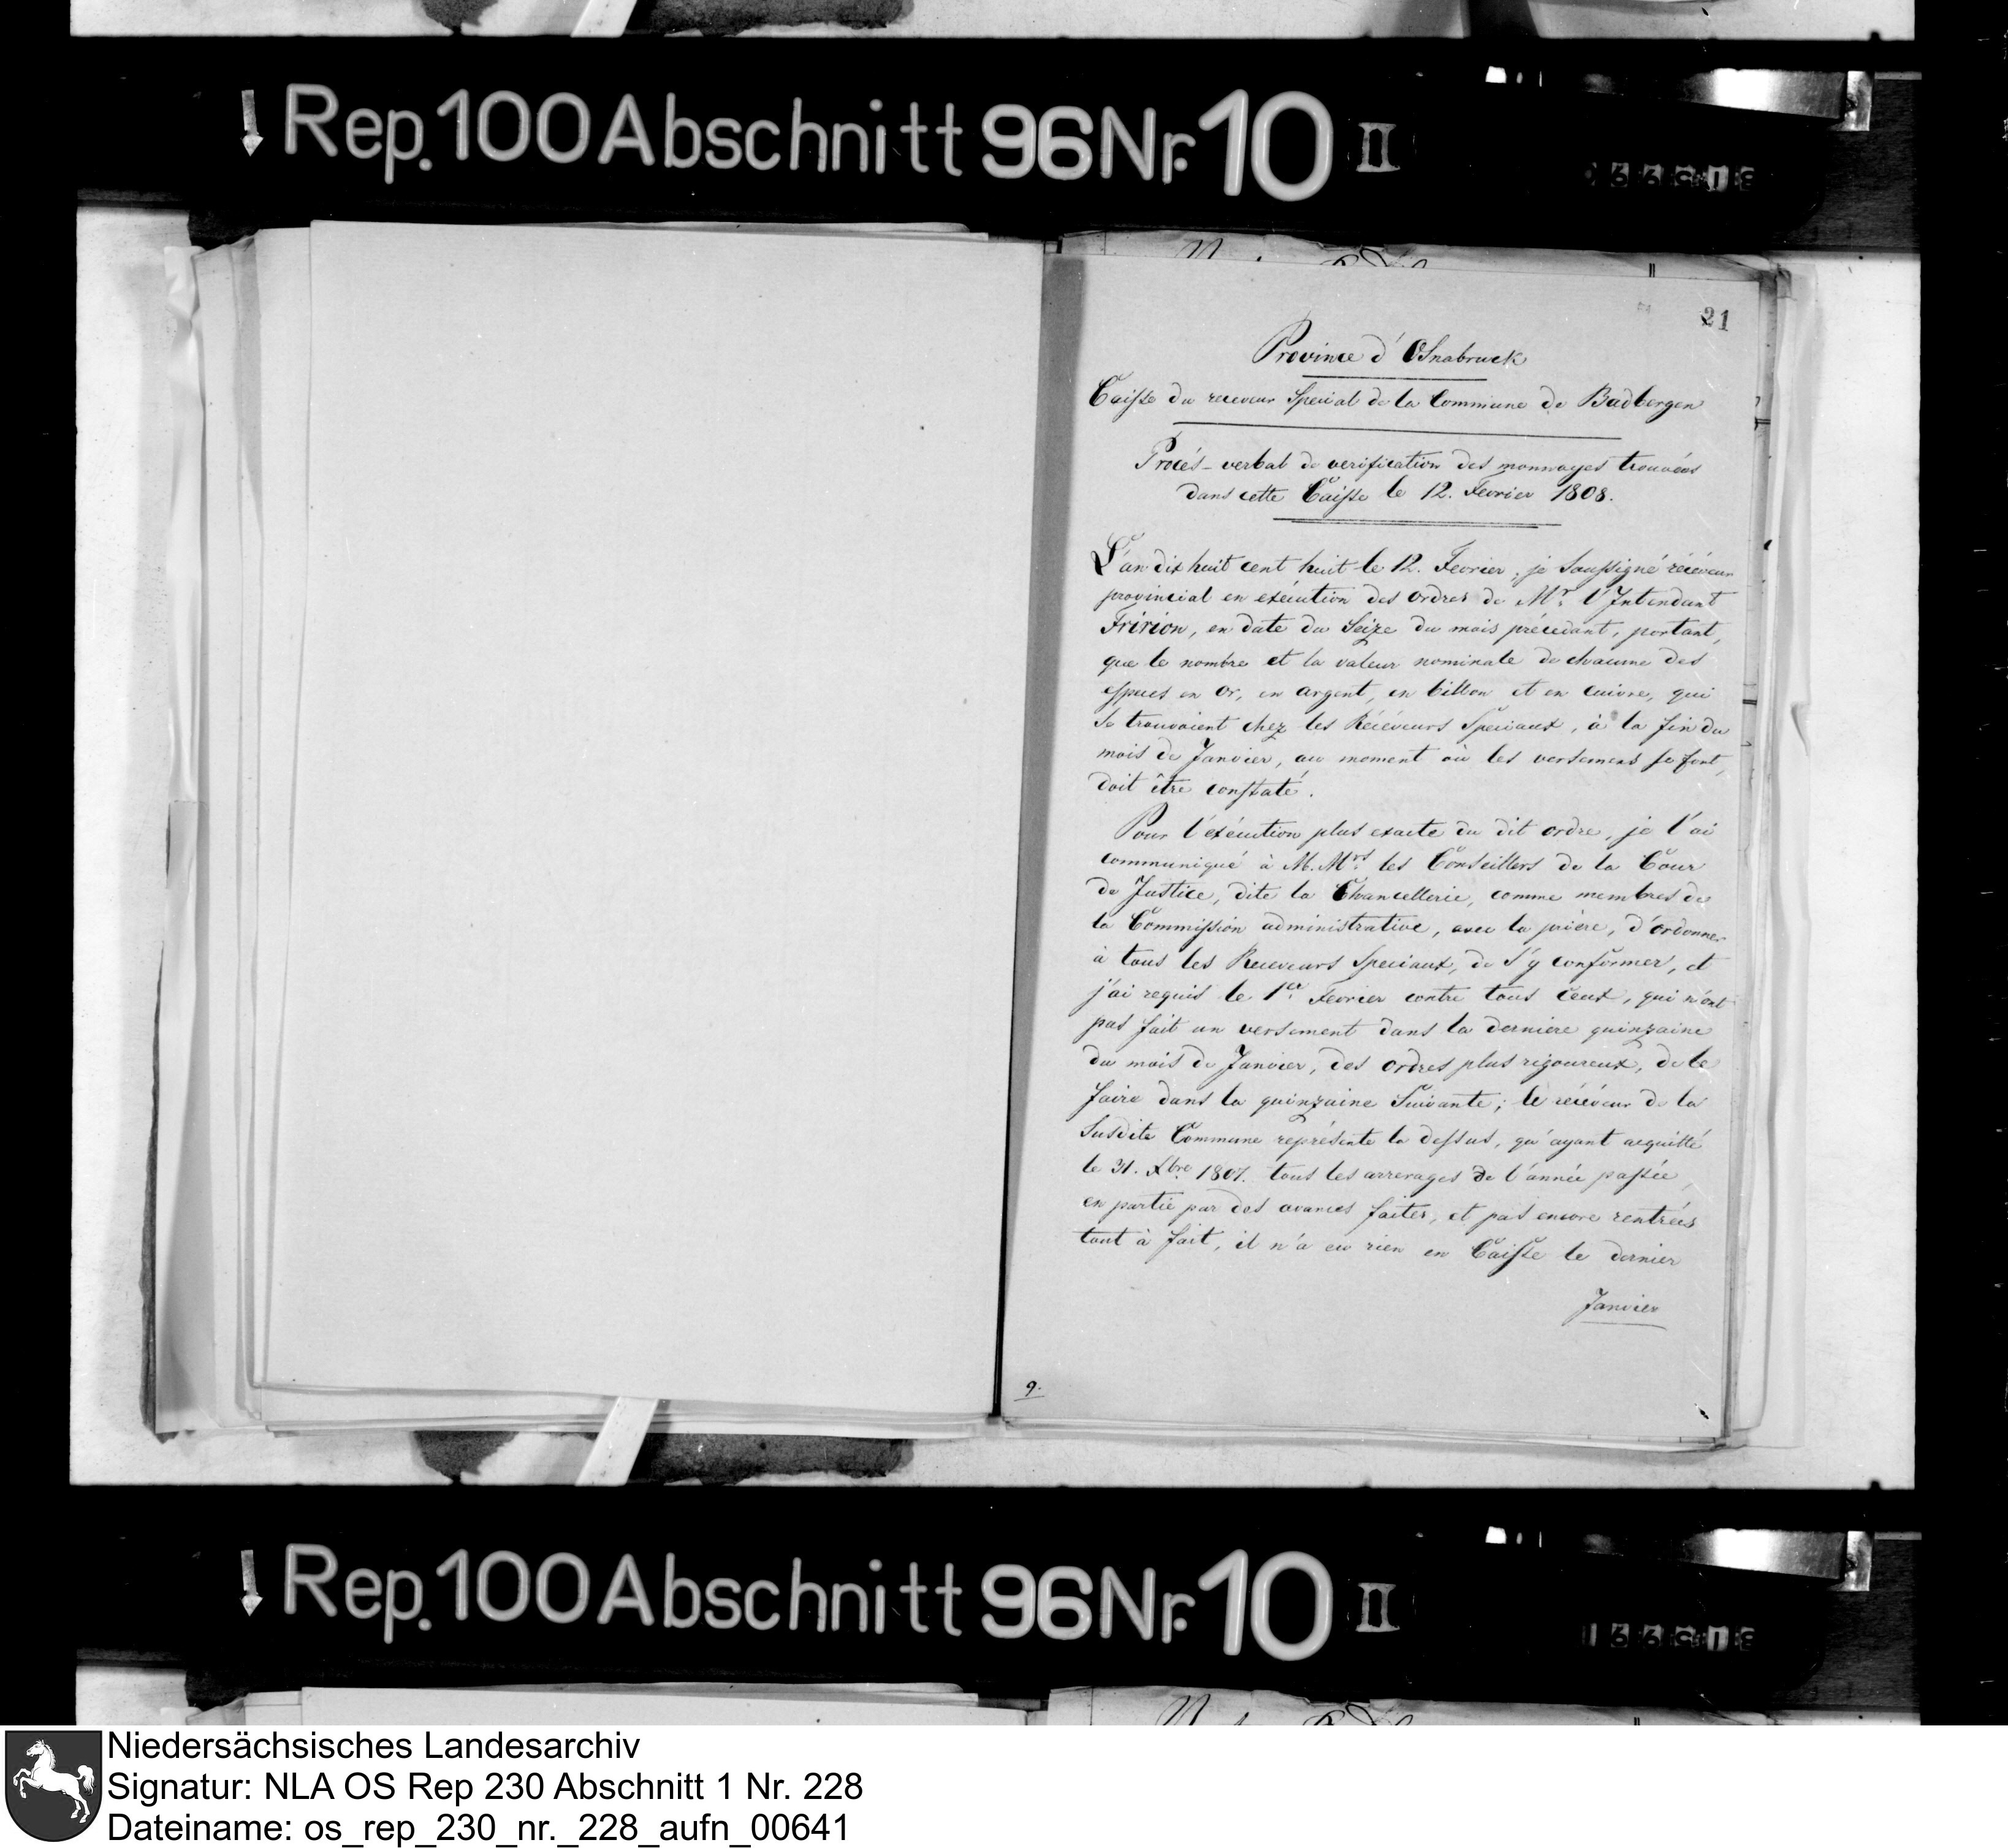 Rep. 100 Abschnitt 96 Nr. 10 II
21
Province d'OSnabruck
Caisse du receveur Special de la Commune de Badbergen
Procés-verbal de verification des monnayes trouvées
dans cette Caisse le 12. Fevrier 1808.
L'an dix huit cent huit le 12. Fevrier, je Soussigné réceveur
provincial en exécution des ordres de Mr. l'Intendant
Fririon, en date du Seize du mois précédant, portant,
que le nombre et la valeur nominale de chacune des
espéces en or, en argent, en billon et en cuivre, qui
Se trouvaient chez les Réceveurs Speciaux, à la fin du
mois de Janvier, au moment où les versemens se font,
doit être constaté.
Pour l'exécution plus exacte du dit ordre, je l'ai
communiqué à M.Mrs. les Conseillers de la Cour
de Justice, dite la Chancellerie, comme membres de
la Commission administrative, avec la prière, d'ordonner
à tous les Receveurs Speciaux, de S'y conformer, et
j'ai requis le 1er. Fevrier contre tous Ceux, qui n'ont
pas fait un versement dans la derniere quinzaine
du mois de Janvier, des ordres plus rigoureux, de le
faire dans la quinzaine Suivante; le réceveur de la
Susdite Commune représente la dessus, qu'ayant acquitté
le 31. Xbre 1807. tous les arrerages de l'année passée,
en partie par des avances faites, et pas encore rentrées
tout à fait, il n'a eu rien en Caisse le dernier
Janvier
9.
Rep. 100 Abschnitt 96 Nr. 10 II
Niedersächsisches Landesarchiv
Signatur: NLA OS Rep 230 Abschnitt 1 Nr. 228
Dateiname: os_rep_230_nr._228_aufn_00641